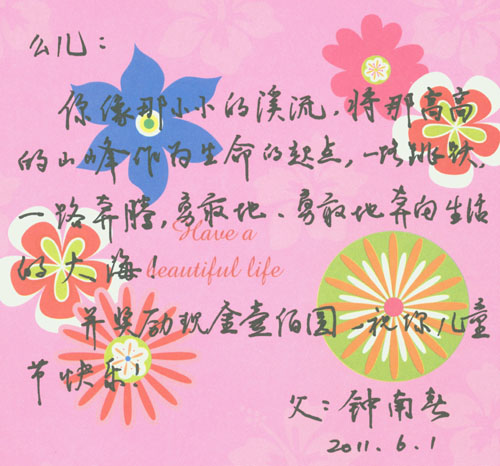 么儿：
你像那小小的溪流，将那高高
的山峰作为生命的起点，一路跳跃，
一路奔腾，勇敢地、勇敢地奔向生活
Have a
的大海！
beautiful life
并奖励现金壹佰圆，祝你儿童
节快乐！
父：钟南新
2011.6.1